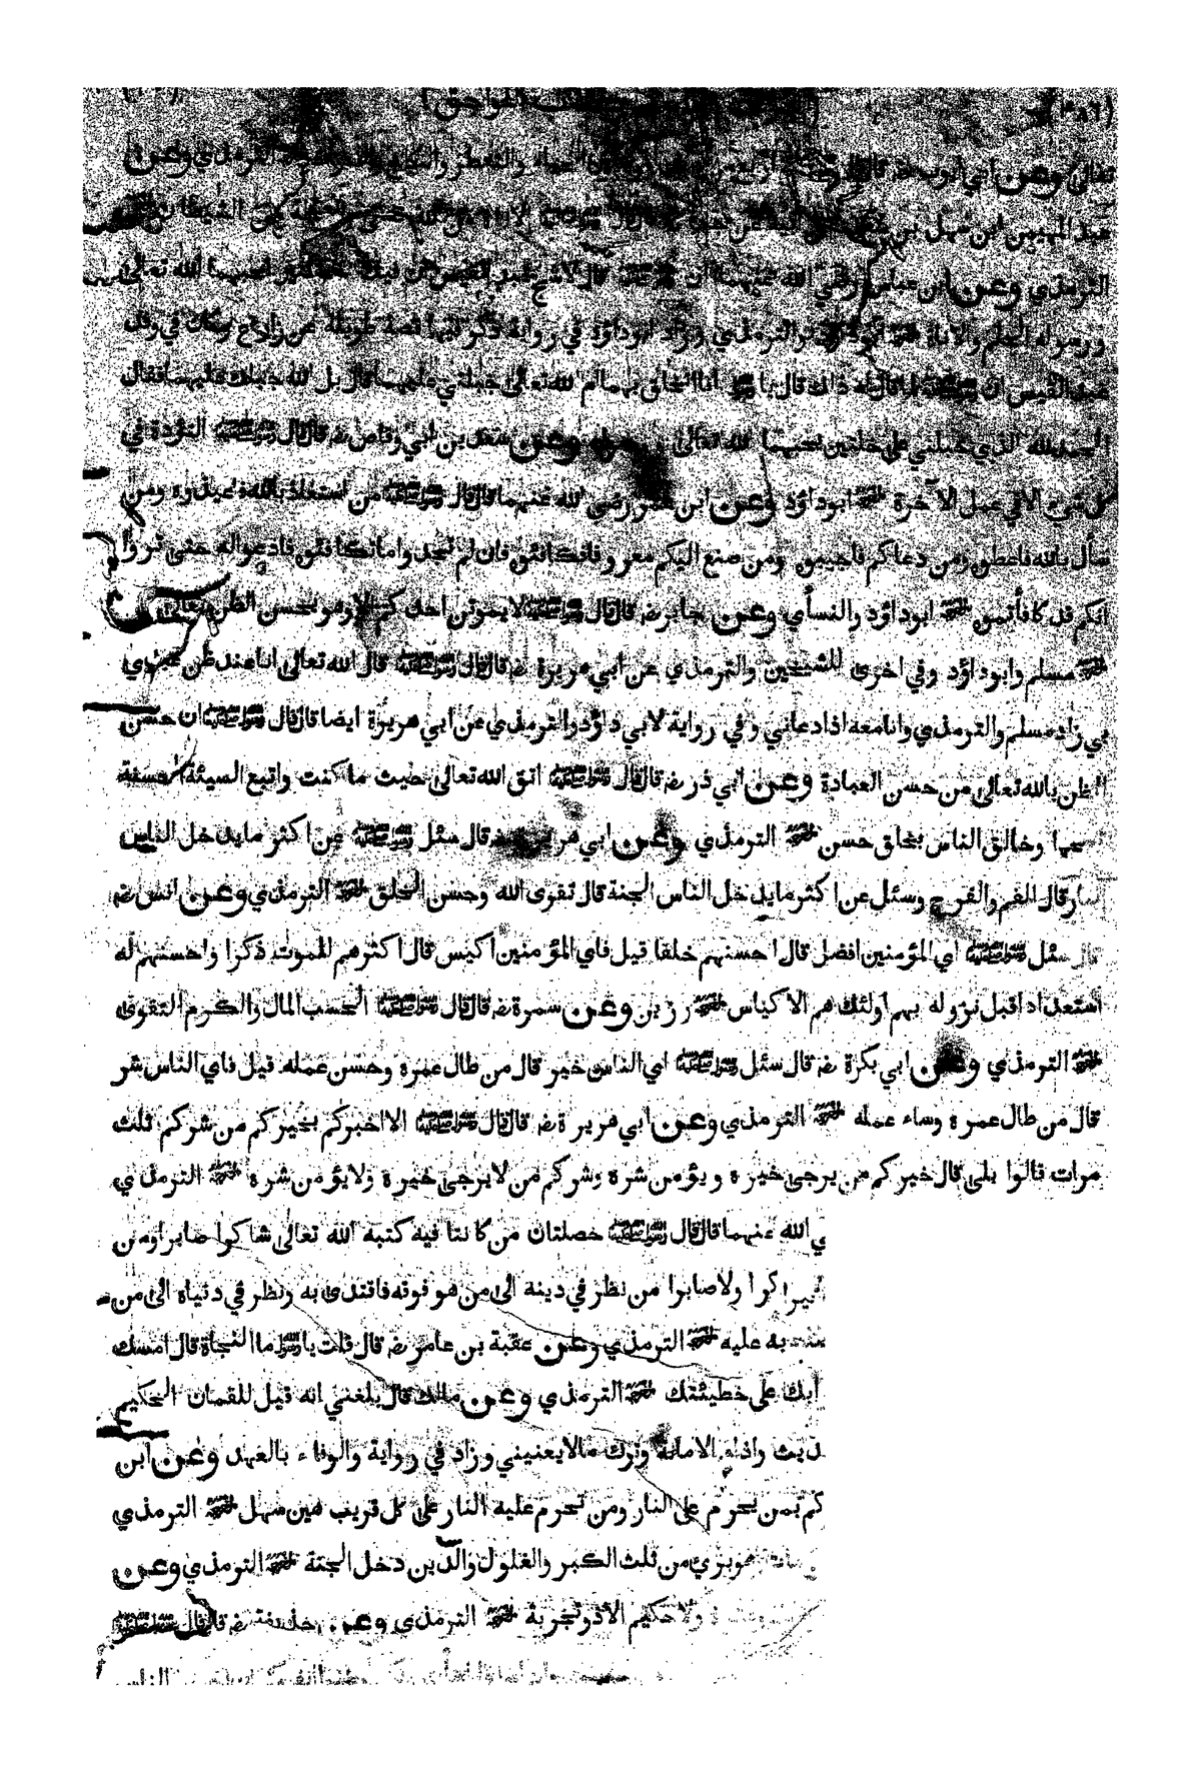 (٣٨٦)
تعالى وعن ابي ايوب رض قال والتعطر والنكاح وعن
عبد المهيمن ابن سهل بن الشيطان
الترمذي وعن ابن عباس رضي الله عنهما ان قال لاشج عبد القيس ان فيك يحبهما الله تعالى
ورسوله الحلم والاناة والترمذي وزاد ابوداؤد في رواية ذكر فيها قصة طويلة عن زارع وكان في وفد
عبد القيس ان لما قال له ذلك قال يا انا اتخلق بهما ام الله تعالى جبلني عليهما قال بل الله جبلك عليهما فقال
الحمد لله الذي جبلني على خلتين يحبهما الله تعالى و رسوله وعن سعد بن ابي وقاص رض قال قال ﷺ التؤدة في
كل شيء الا في عمل الآخرة ابوداؤد وعن ابن عمر رضي الله عنهما قال قال ﷺ من استعاذ بالله فاعيذوه ومن
سأل بالله فاعطوه ومن دعاكم فاجيبوه ومن صنع اليكم معروفا فكافئوه فان لم تجدوا ما تكافئوه فادعوا له حتى تروا
انكم قد كافأتموه ابوداؤد والنسأي وعن جابر رض قال قال ﷺ لا يموتن احدكم الا وهو يحسن الظن بالله تعالى
مسلم وابوداؤد وفي اخرى للشيخين والترمذي عن ابي هريرة رض قال قال ﷺ قال الله تعالى انا عند ظن عبدي
بي زاد مسلم والترمذي وانا معه اذا دعاني وفي رواية لابي داؤد والترمذي عن ابي هريرة ايضا قال قال ﷺ ان حسن
الظن بالله تعالى من حسن العبادة وعن ابي ذر رض قال قال ﷺ اتق الله تعالى حيث ما كنت واتبع السيئة الحسنة
تمحها وخالق الناس بخلق حسن الترمذي وعن ابي هريرة رض قال سئل ﷺ عن اكثر ما يدخل الناس
النار قال الفم والفرج وسئل عن اكثر ما يدخل الناس الجنة قال تقوى الله وحسن الخلق الترمذي وعن انس رض
قال سئل ﷺ اي المؤمنين افضل قال احسنهم خلقا قيل فاي المؤمنين اكيس قال اكثرهم للموت ذكرا واحسنهم له
استعدادا قبل نزوله بهم اولئك هم الاكياس رزين وعن سمرة رض قال قال ﷺ الحسب المال والكرم التقوى
الترمذي وعن ابي بكرة رض قال سئل ﷺ اي الناس خير قال من طال عمره وحسن عمله قيل فاي الناس شر
قال من طال عمره وساء عمله الترمذي وعن ابي هريرة رض قال قال ﷺ الا اخبركم بخيركم من شركم ثلث
مرات قالوا بلى قال خيركم من يرجى خيره ويؤمن شره وشركم من لا يرجى خيره ولا يؤمن شره الترمذي
ي الله عنهما قال قال ﷺ خصلتان من كانتا فيه كتبه الله تعالى شاكرا صابرا ومن
كرا ولا صابرا من نظر في دينه الى من هو فوقه فاقتدى به ونظر في دنياه الى من
به عليه الترمذي وعن عقبة بن عامر رض قال قلت يا رسول ما النجاة قال امسك
ابك على خطيئتك الترمذي وعن مالك قال بلغني انه قيل للقمان الحكيم
ديث واداء الامانة وترك ما لا يعنيني وزاد في رواية والوفاء بالعهد وعن ابن
كم بمن يحرم على النار ومن تحرم عليه النار على كل قريب هين سهل الترمذي
هو بريء من ثلث الكبر والغلول والدين دخل الجنة الترمذي وعن
ولا حكيم الا ذو تجربة الترمذي وعن قال قال ﷺ
الناس